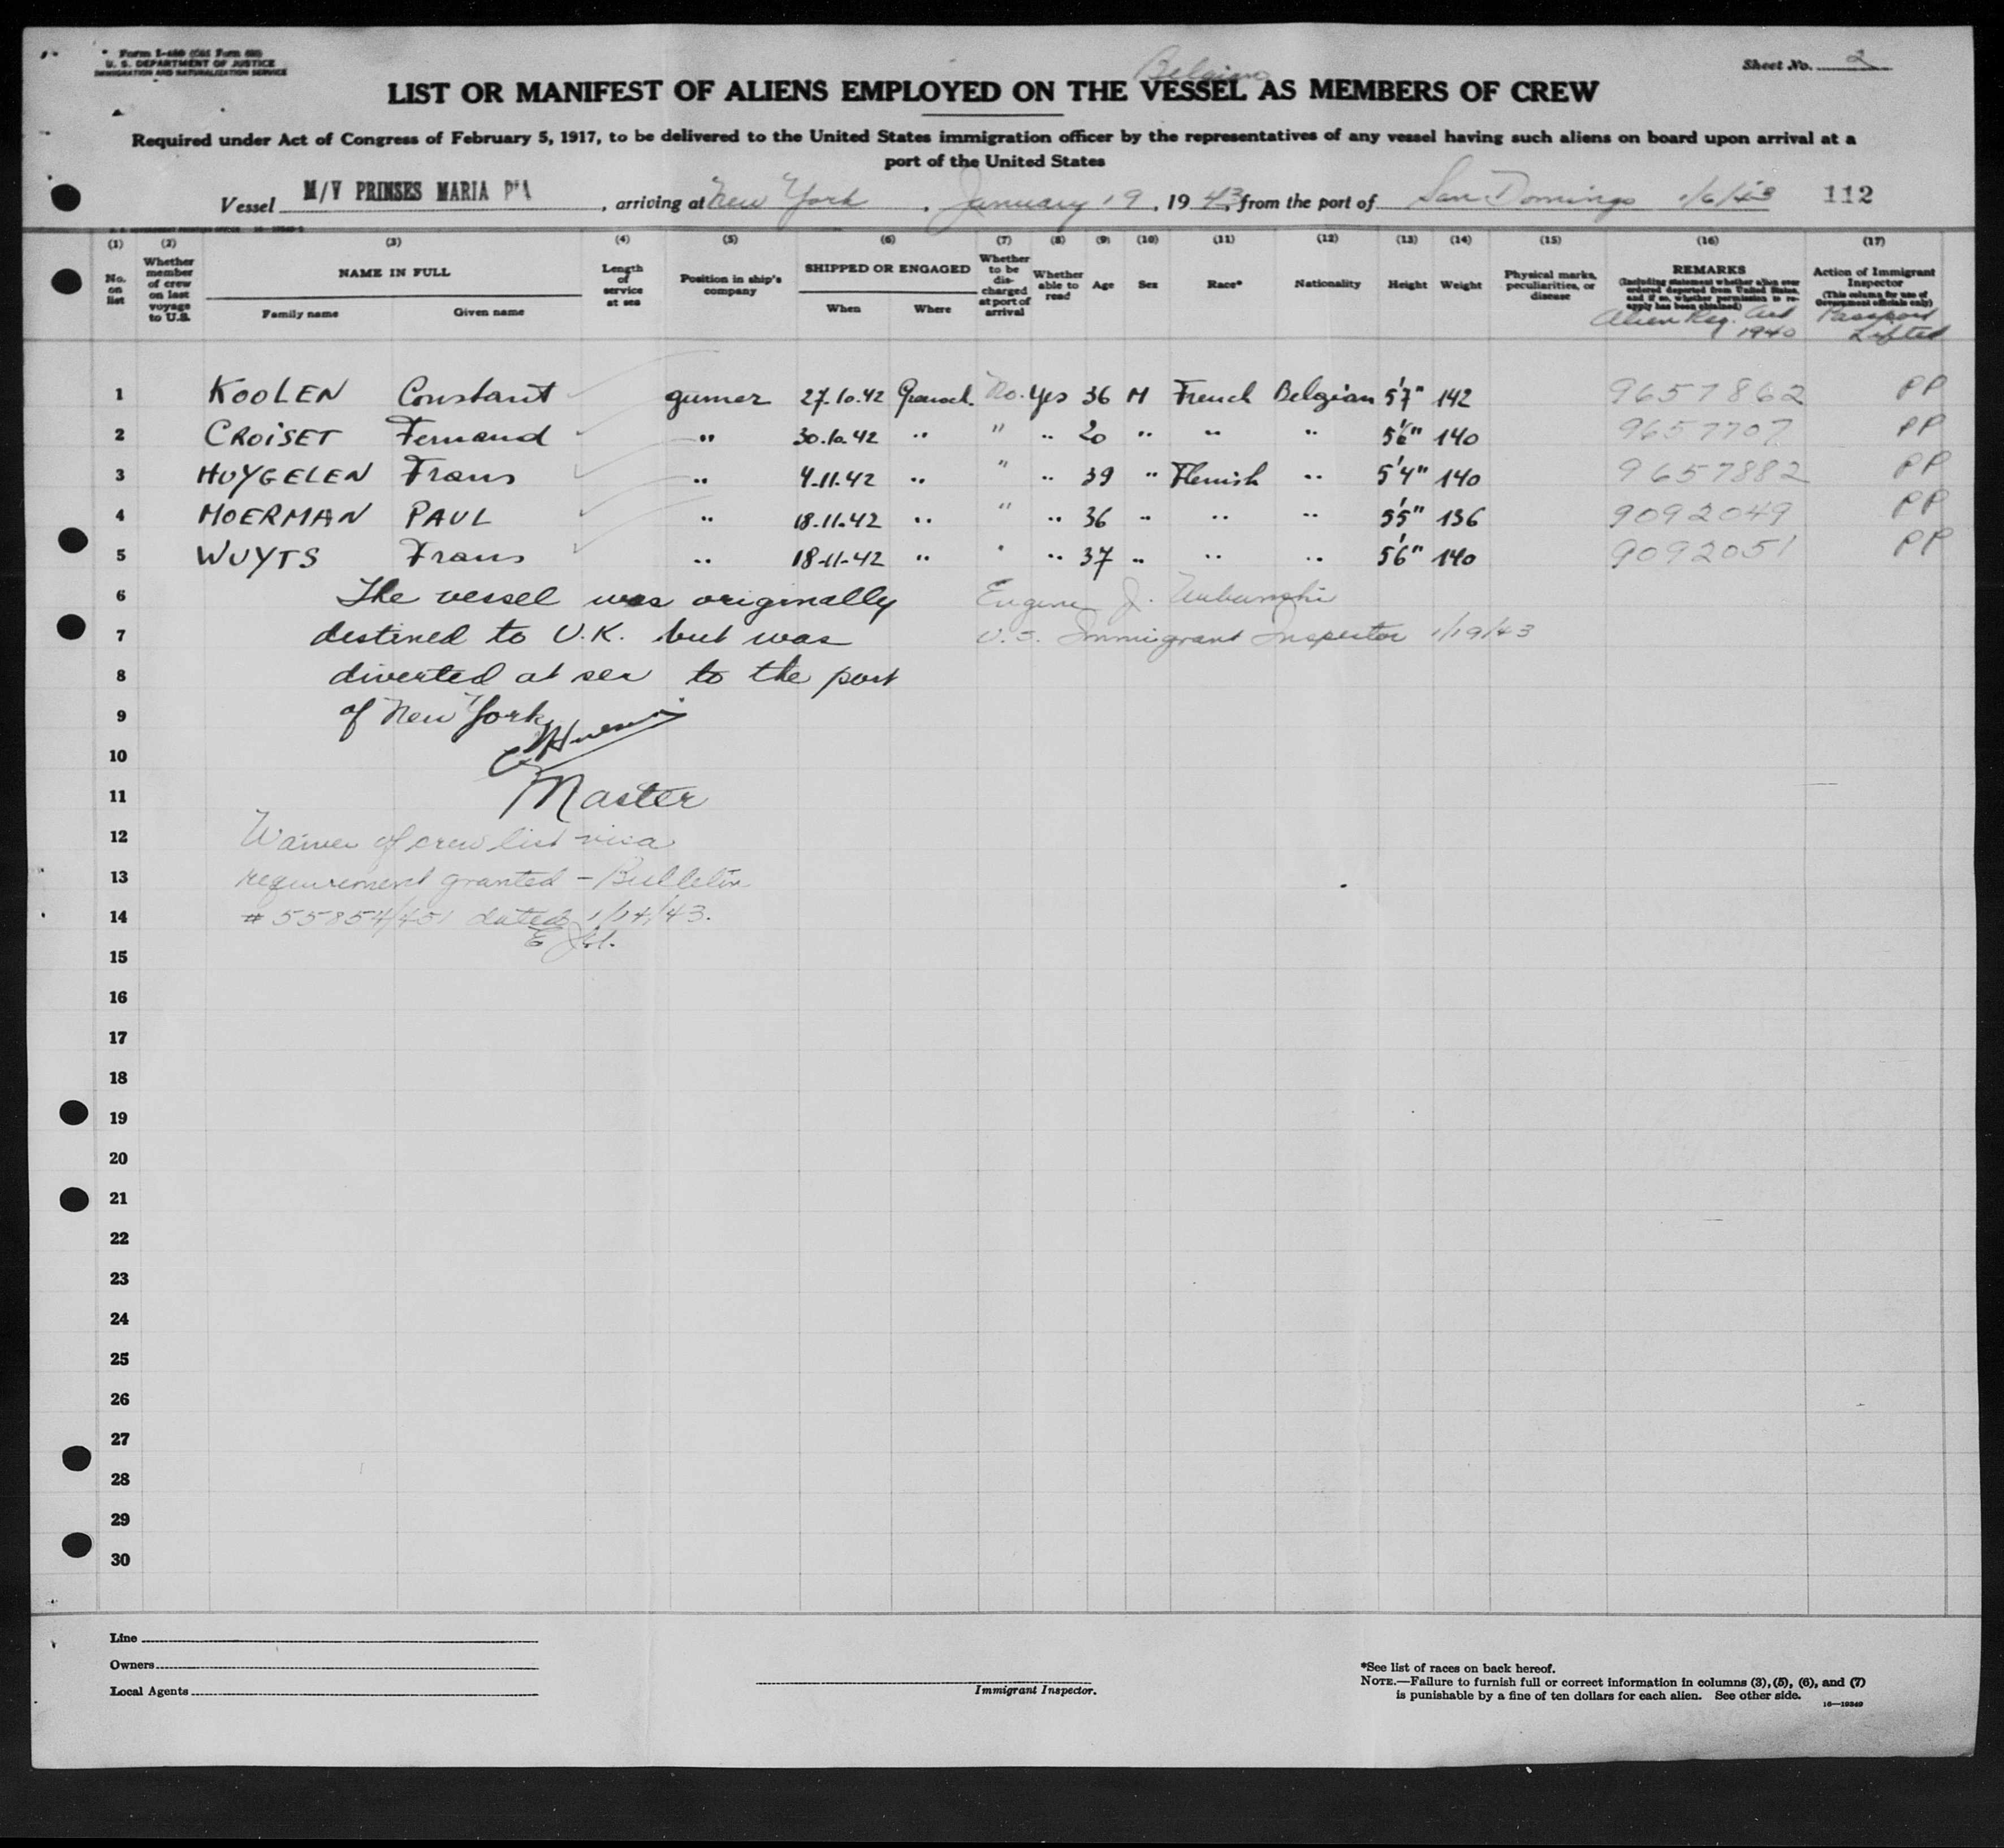 Form I-480 (Old Form 680)
U. S. DEPARTMENT OF JUSTICE
IMMIGRATION AND NATURALIZATION SERVICE
Sheet No. 2
Belgian
LIST OR MANIFEST OF ALIENS EMPLOYED ON THE VESSEL AS MEMBERS OF CREW
Required under Act of Congress of February 5, 1917, to be delivered to the United States immigration officer by the representatives of any vessel having such aliens on board upon arrival at a
port of the United States
Vessel M/V PRINSES MARIA PIA, arriving at New York, January 19, 1943, from the port of San Domingo 1/6/43 112
(1) (2) (3) (4) (5) (6) (7) (8) (9) (10) (11) (12) (13) (14) (15) (16) (17)
No. on list
Whether member of crew on last voyage to U.S.
NAME IN FULL
Family name Given name
Length of service at sea
Position in ship's company
SHIPPED OR ENGAGED
When Where
Whether to be discharged at port of arrival
Whether able to read
Age Sex Race* Nationality Height Weight
Physical marks, peculiarities, or disease
REMARKS
(Including statement whether alien ever ordered deported from United States, and if so, whether permission to reapply has been obtained)
Alien Reg. Act 1940
Action of Immigrant Inspector
(This column for use of Government officials only)
Passport Lifted
1 KOOLEN Constant gunner 27.10.42 No. Yes 36 M French Belgian 5'7" 142 9657862 PP
2 CROISET Fernand " 30.10.42 " " " 20 " " " 5'6" 140 9657707 PP
3 HUYGELEN Frans " 4-11-42 " " " 39 " Flemish " 5'4" 140 9657882 PP
4 MOERMAN PAUL " 18-11-42 " " " 36 " " " 5'5" 136 9092049 PP
5 WUYTS Frans " 18-11-42 " " " 37 " " " 5'6" 140 9092051 PP
6 The vessel was originally Eugene J.
7 destined to U.K. but was U.S. Immigrant Inspector 1/19/43
8 diverted at sea to the port
9 of New York
10
11 Master
12 Waiver of crew list visa
13 requirement granted - Bulletin
14 # 55854/451 dated 1/14/43.
15
16
17
18
19
20
21
22
23
24
25
26
27
28
29
30
Line
Owners
Local Agents
Immigrant Inspector.
*See list of races on back hereof.
NOTE.—Failure to furnish full or correct information in columns (3), (5), (6), and (7)
is punishable by a fine of ten dollars for each alien. See other side.
16—19349